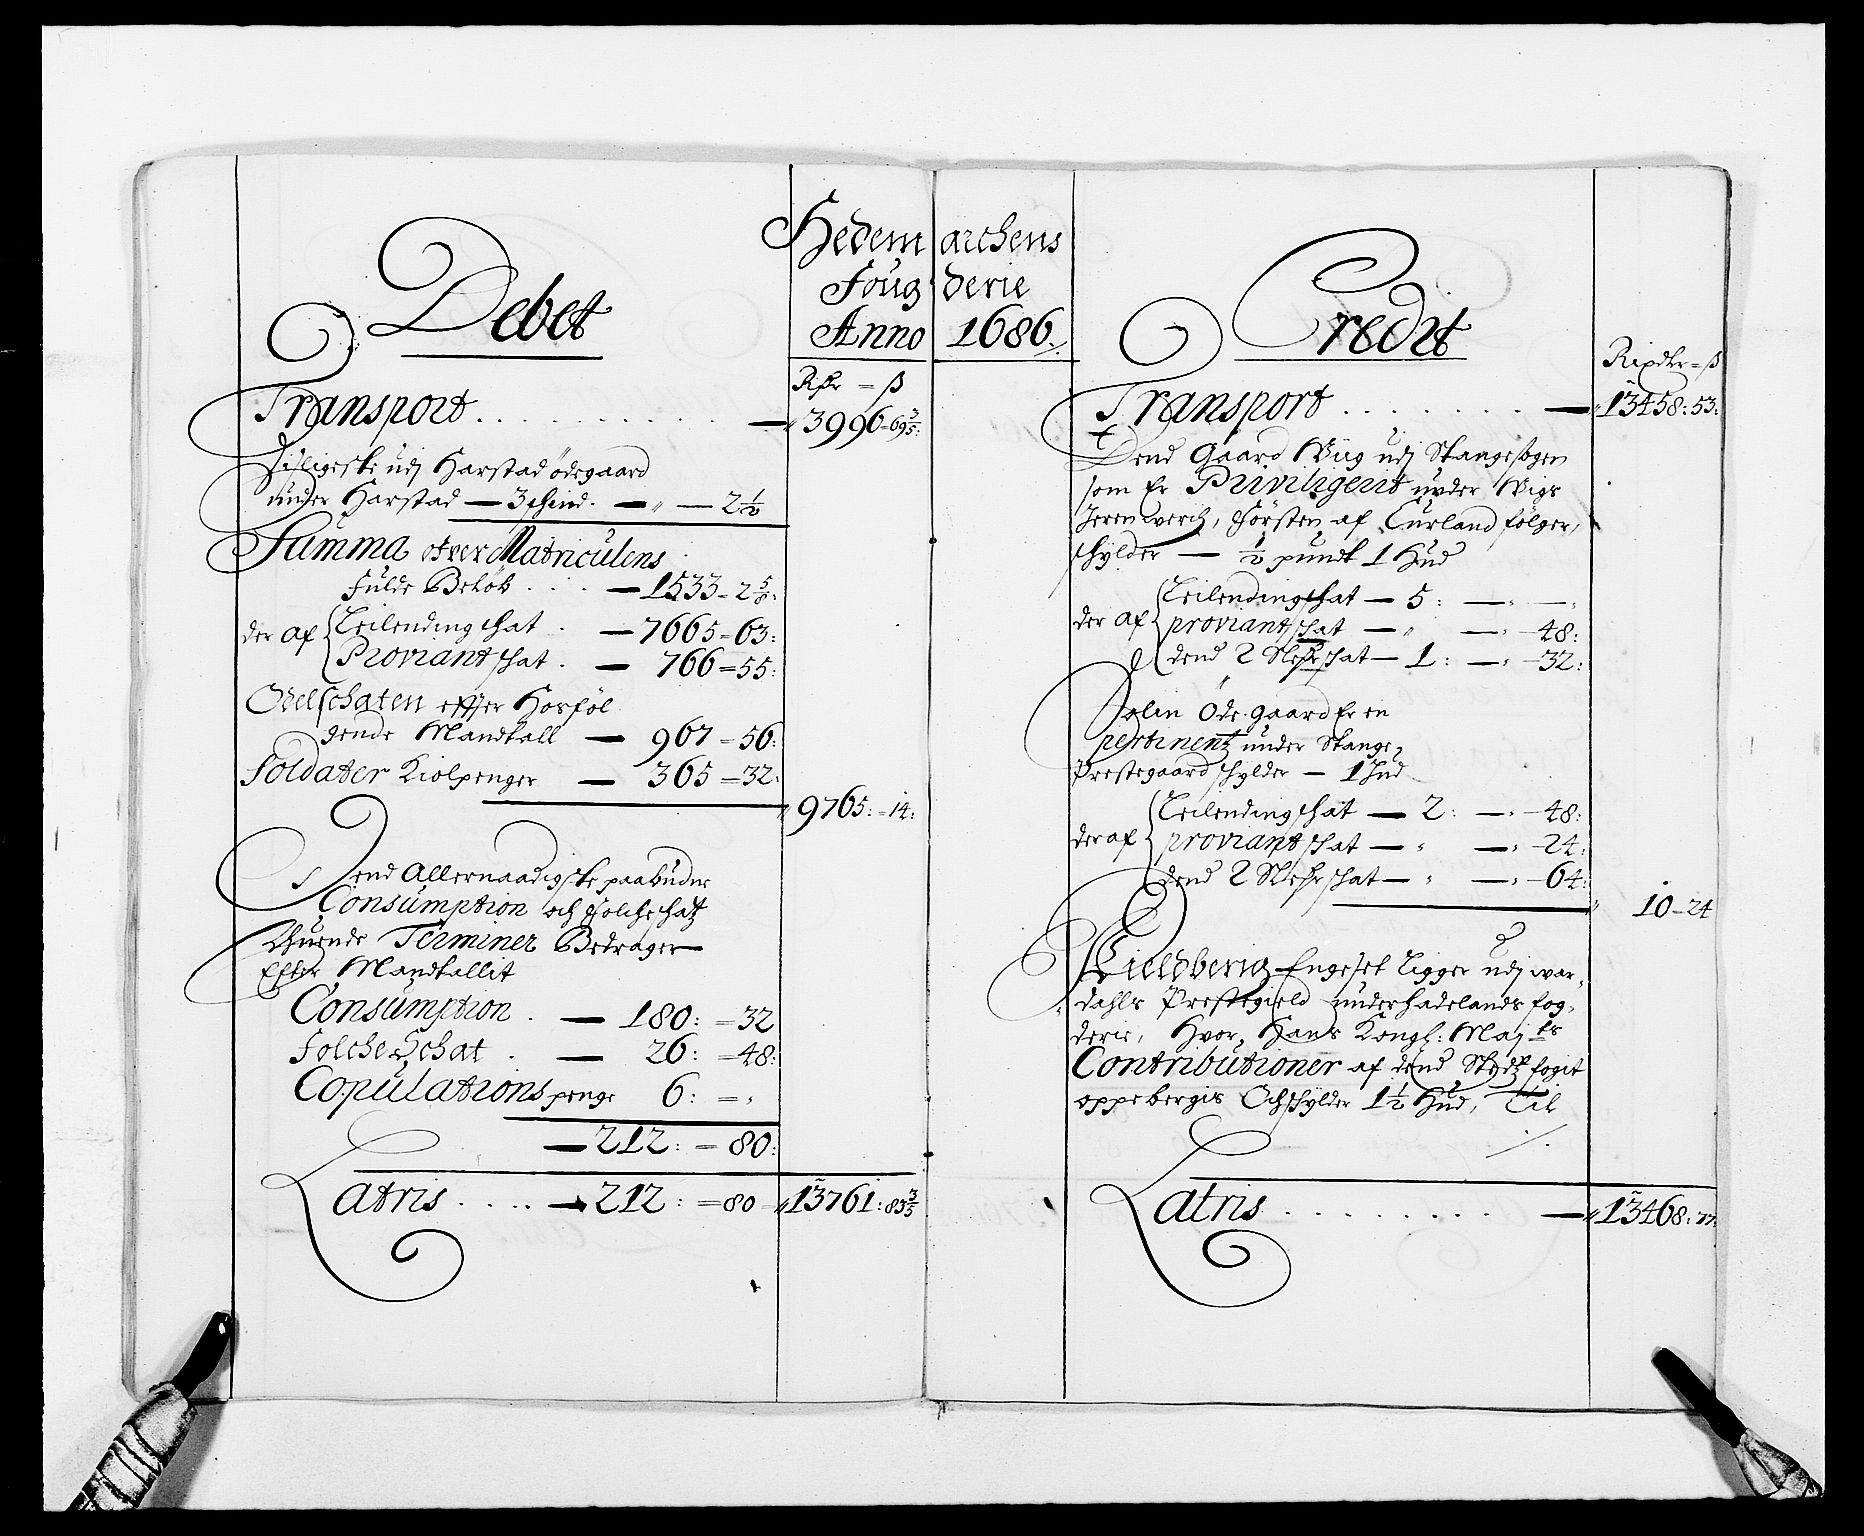 Hedemarchens
Fougderie
Anno 1686.
Debet
Rdr = ß
Transport . . . . . . . . . — 3996=69 3/5:
Disligeste udj Harstad ödegaard
under Harstad — 3 schind. — „ — 2 1/2
Summa ofver Matriculens
fulde Beløb . . . — 1533=2 5/8:
der af Leilending schat . — 7665=63:
Proviant schat . — 766=55:
Odelschaten efter Hosföl
gende Mandtall — 967=56:
Soldater Kiolpenger — 365=32:
9765:=14:
Dend Allernaadigste paabudne
Consumption och folcheschatz
Thuende Terminer Bedrager
Efter Mandtallit
Consumption . — 180:=32
Folche Schat . — 26:=48:
Copulations penge 6:=„
— 212:=80:
Latris . . . . — 212:=80 13761:83 3/5
Credit
Rixdlr=ß
Transport . . . . . . . — 13458:53:
Dend Gaard Wiig udj Stangesogen
som Er Priviligerit under Wigs
Jerenwerch, försten af Curland fölger,
schylder — 1/2 pundt 1 Hud
der af Leilending schat — 5: — „ — „
proviant schat — „ — „ — 48:
dend 2 Slesse schat — 1: — „ — 32:
Solin Öde gaard Er en
pertinentz under Stange
Prestegaard schylder — 1 Hud
der af Leilending schat — 2: — „ — 48:
proviant schat — „ — „ — 24:
dend 2 Slesse schat — „ — „ — 64:
10=24
Kieldberig Engeslet Ligger udj War-
dahls Prestegield under Hadelands fog-
derie, Hvor, Hans Kongl: Maj:ts
Contributioner af dend Stedtz fogit
oppebergis Och schylder 1 1/2 Hud, Til
Latris . . . . . . . . — 13468:77: